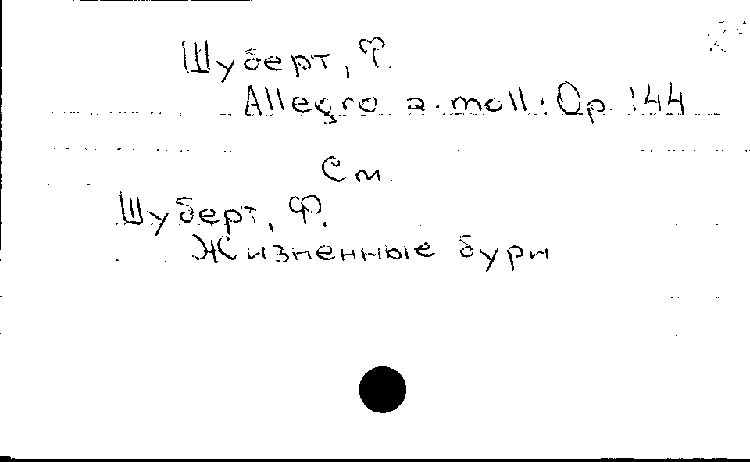 Шуберт, Ф.
Allegro a-moll: Op. 144
См.
Шуберт, Ф.
Жизненные бури